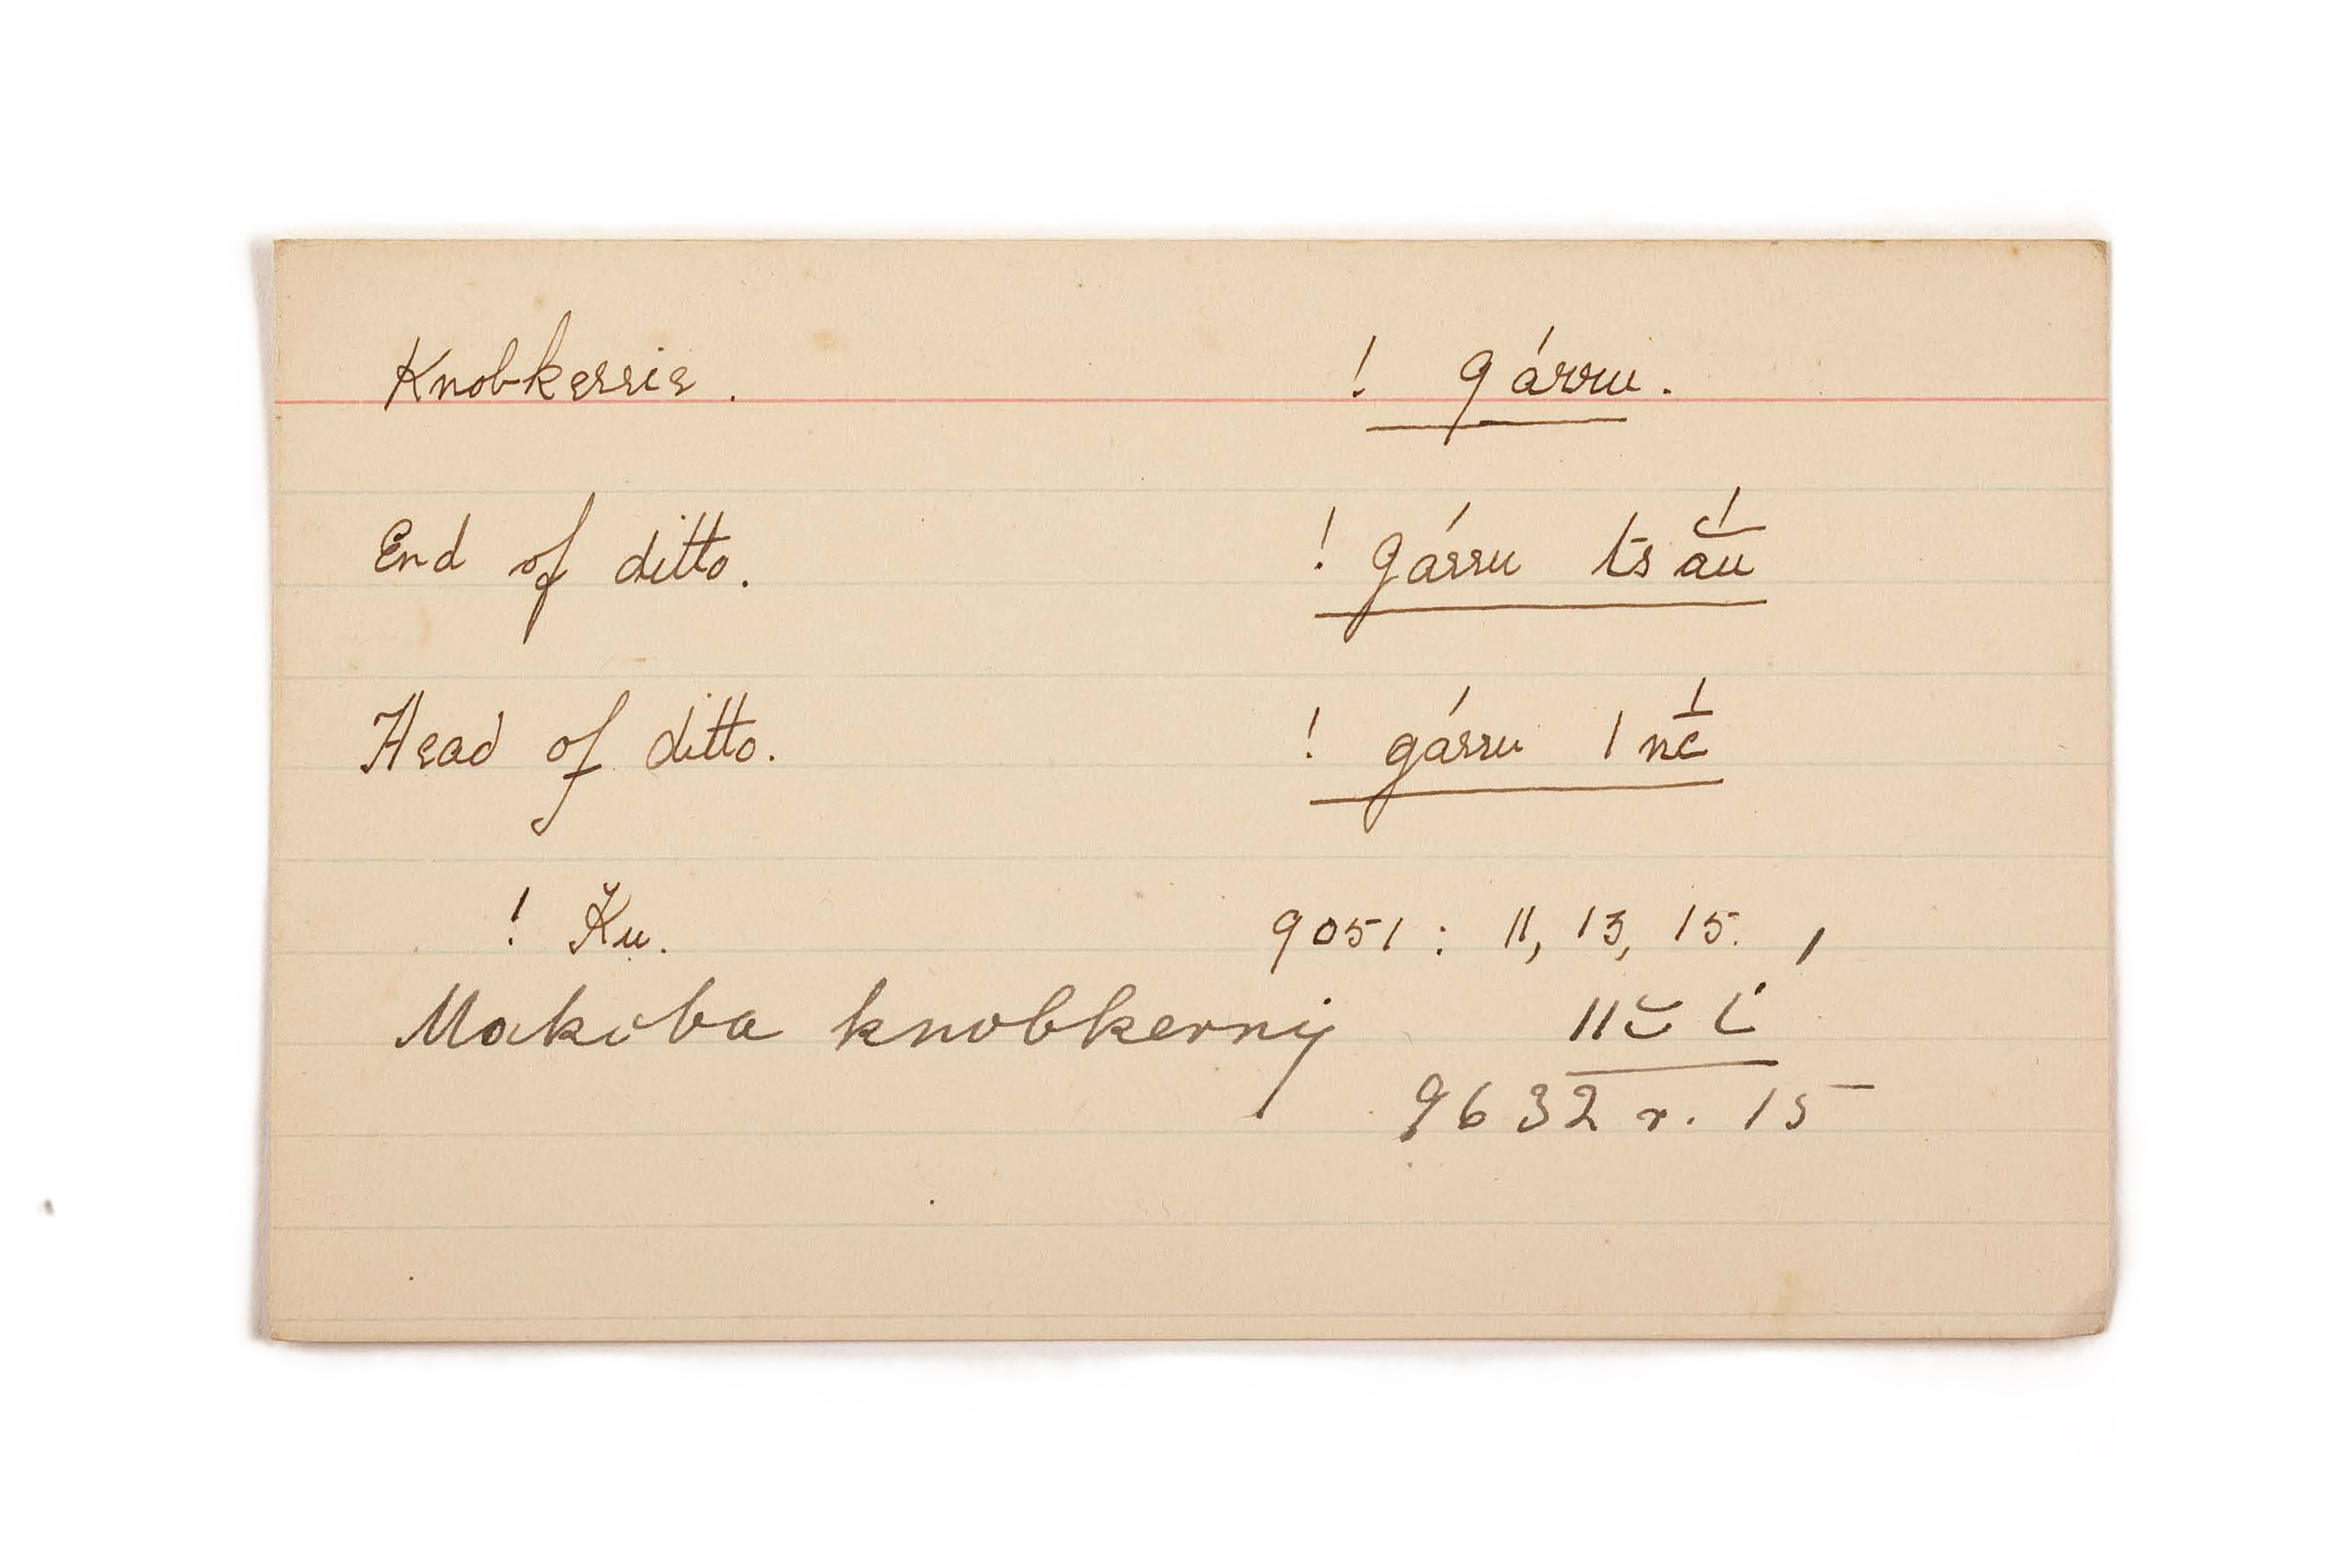 Knobkerrie. ! gárru.
End of ditto. ! gárru ts
Head of ditto. ! gárru |
! Ku. 9051 : 11, 13, 15.
Makoba
9632 r. 15